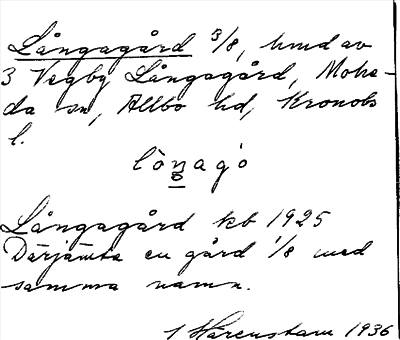 Långagård 3/8, hmd av
3 Vegby Långagård, Mohe-
da sn, Allbo hd, Kronobs
l.
Långagård kb 1925
Därjämte en gård 1/8 med
samma namn.
Harenstam 1936